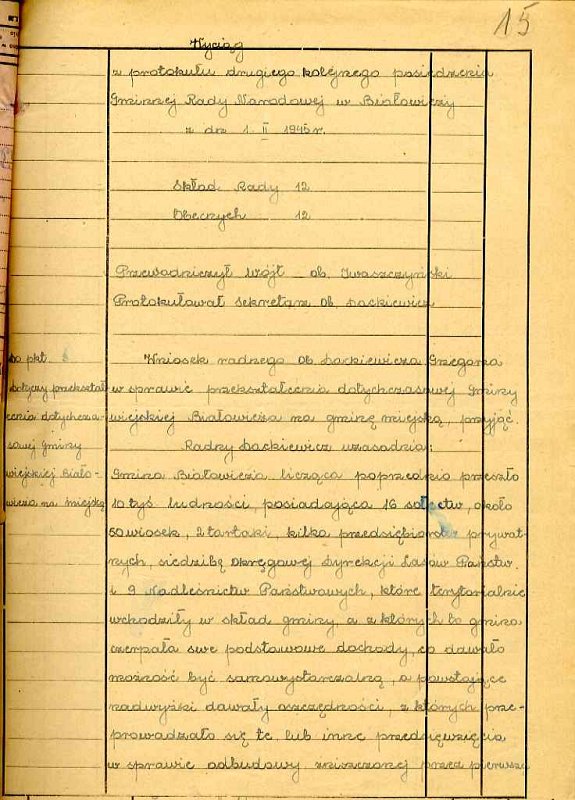 15
Wyciąg
z protokułu drugiego kolejnego posiedzenia
Gminnej Rady Narodowej w Białowieży
z dn 1. II 1945 r.
Skład Rady 12
Obecnych 12
Przewodniczył Wójt ob. Iwaszczyński
Protokułował sekretarz ob. Lackiewicz
Do pkt. 8
dotyczy przekształ-
cenia dotychcza-
sowej Gminy
wiejskiej Biało-
wieża na miejską
Wniosek radnego ob Lackiewicza Grzegorza
w sprawie przekształcenia dotychczasowej Gminy
wiejskiej Białowieża na gminę miejską, przyjąć.
Radny Lackiewicz uzasadnia:
Gmina Białowieża licząca poprzednio przeszło
10 tyś ludności, posiadająca 16 sołectw, około
50 wiosek, 2 tartaki, kilka przedsiębiorstw prywat-
nych, siedzibę Okręgowej Dyrekcji Lasów Państw.
i 9 Nadleśnictw Państwowych, które terytorialnie
wchodziły w skład gminy, a z których to gmina
czerpała swe podstawowe dochody, co dawało
możność być samowystarczalną, a powstające
nadwyżki dawały oszczędności, z których prze-
prowadzało się te, lub inne przedsięwzięcia
w sprawie odbudowy zniszczonej przez pierwszą